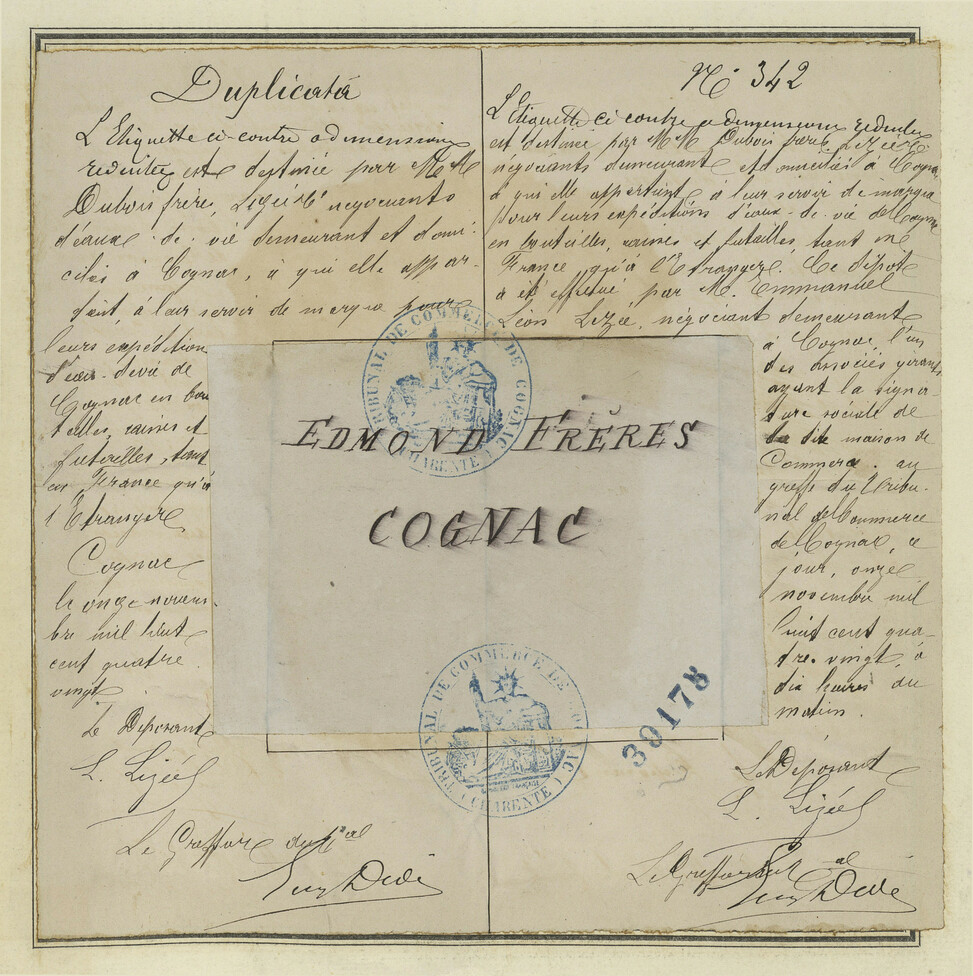 Duplicata
L'Etiquette ci-contre a dimensions
reduites est destinée par MM
Dubois frères, Lizée & Cie négociants
d'eaux-de-vie demeurant et domi-
ciliés à Cognac, à qui elle appar-
tient, à leur servir de marque pour
leurs expéditions
d'eaux-de-vie de
Cognac en bou
teilles, caisses et
futailles, tant
en France qu'à
l'Etranger
Cognac
le onze novem-
bre mil huit
cent quatre
vingt
Le Déposant
L. Lizée
Le Greffier du Tal
N° 342
L'Etiquette ci contre a dimensions reduites
est destinée par MM Dubois frères, Lizée & Cie
négociants demeurant et domiciliés à Cognac
à qui elle appartient à leur servir de marque
pour leurs expéditions d'eaux-de-vie de Cognac
en bouteilles, caisses et futailles, tant en
France qu'à l'Etranger. Ce dépôt
a été effectué par M. Emmanuel
Léon Lizée, négociant demeurant
à Cognac l'un
des associés gérants
ayant la signa-
ture sociale de
la dite maison de
Commerce. au
greffe du Tribu-
nal de Commerce
de Cognac, ce
jour, onze
novembre mil
huit cent qua-
tre-vingt, à
dix heures du
matin.
Le Déposant
L. Lizée
Le Greffier du Tal
EDMOND FRÈRES
COGNAC
TRIBUNAL DE COMMERCE DE COGNAC
(CHARENTE)
TRIBUNAL DE COMMERCE DE COGNAC
(CHARENTE)
30178